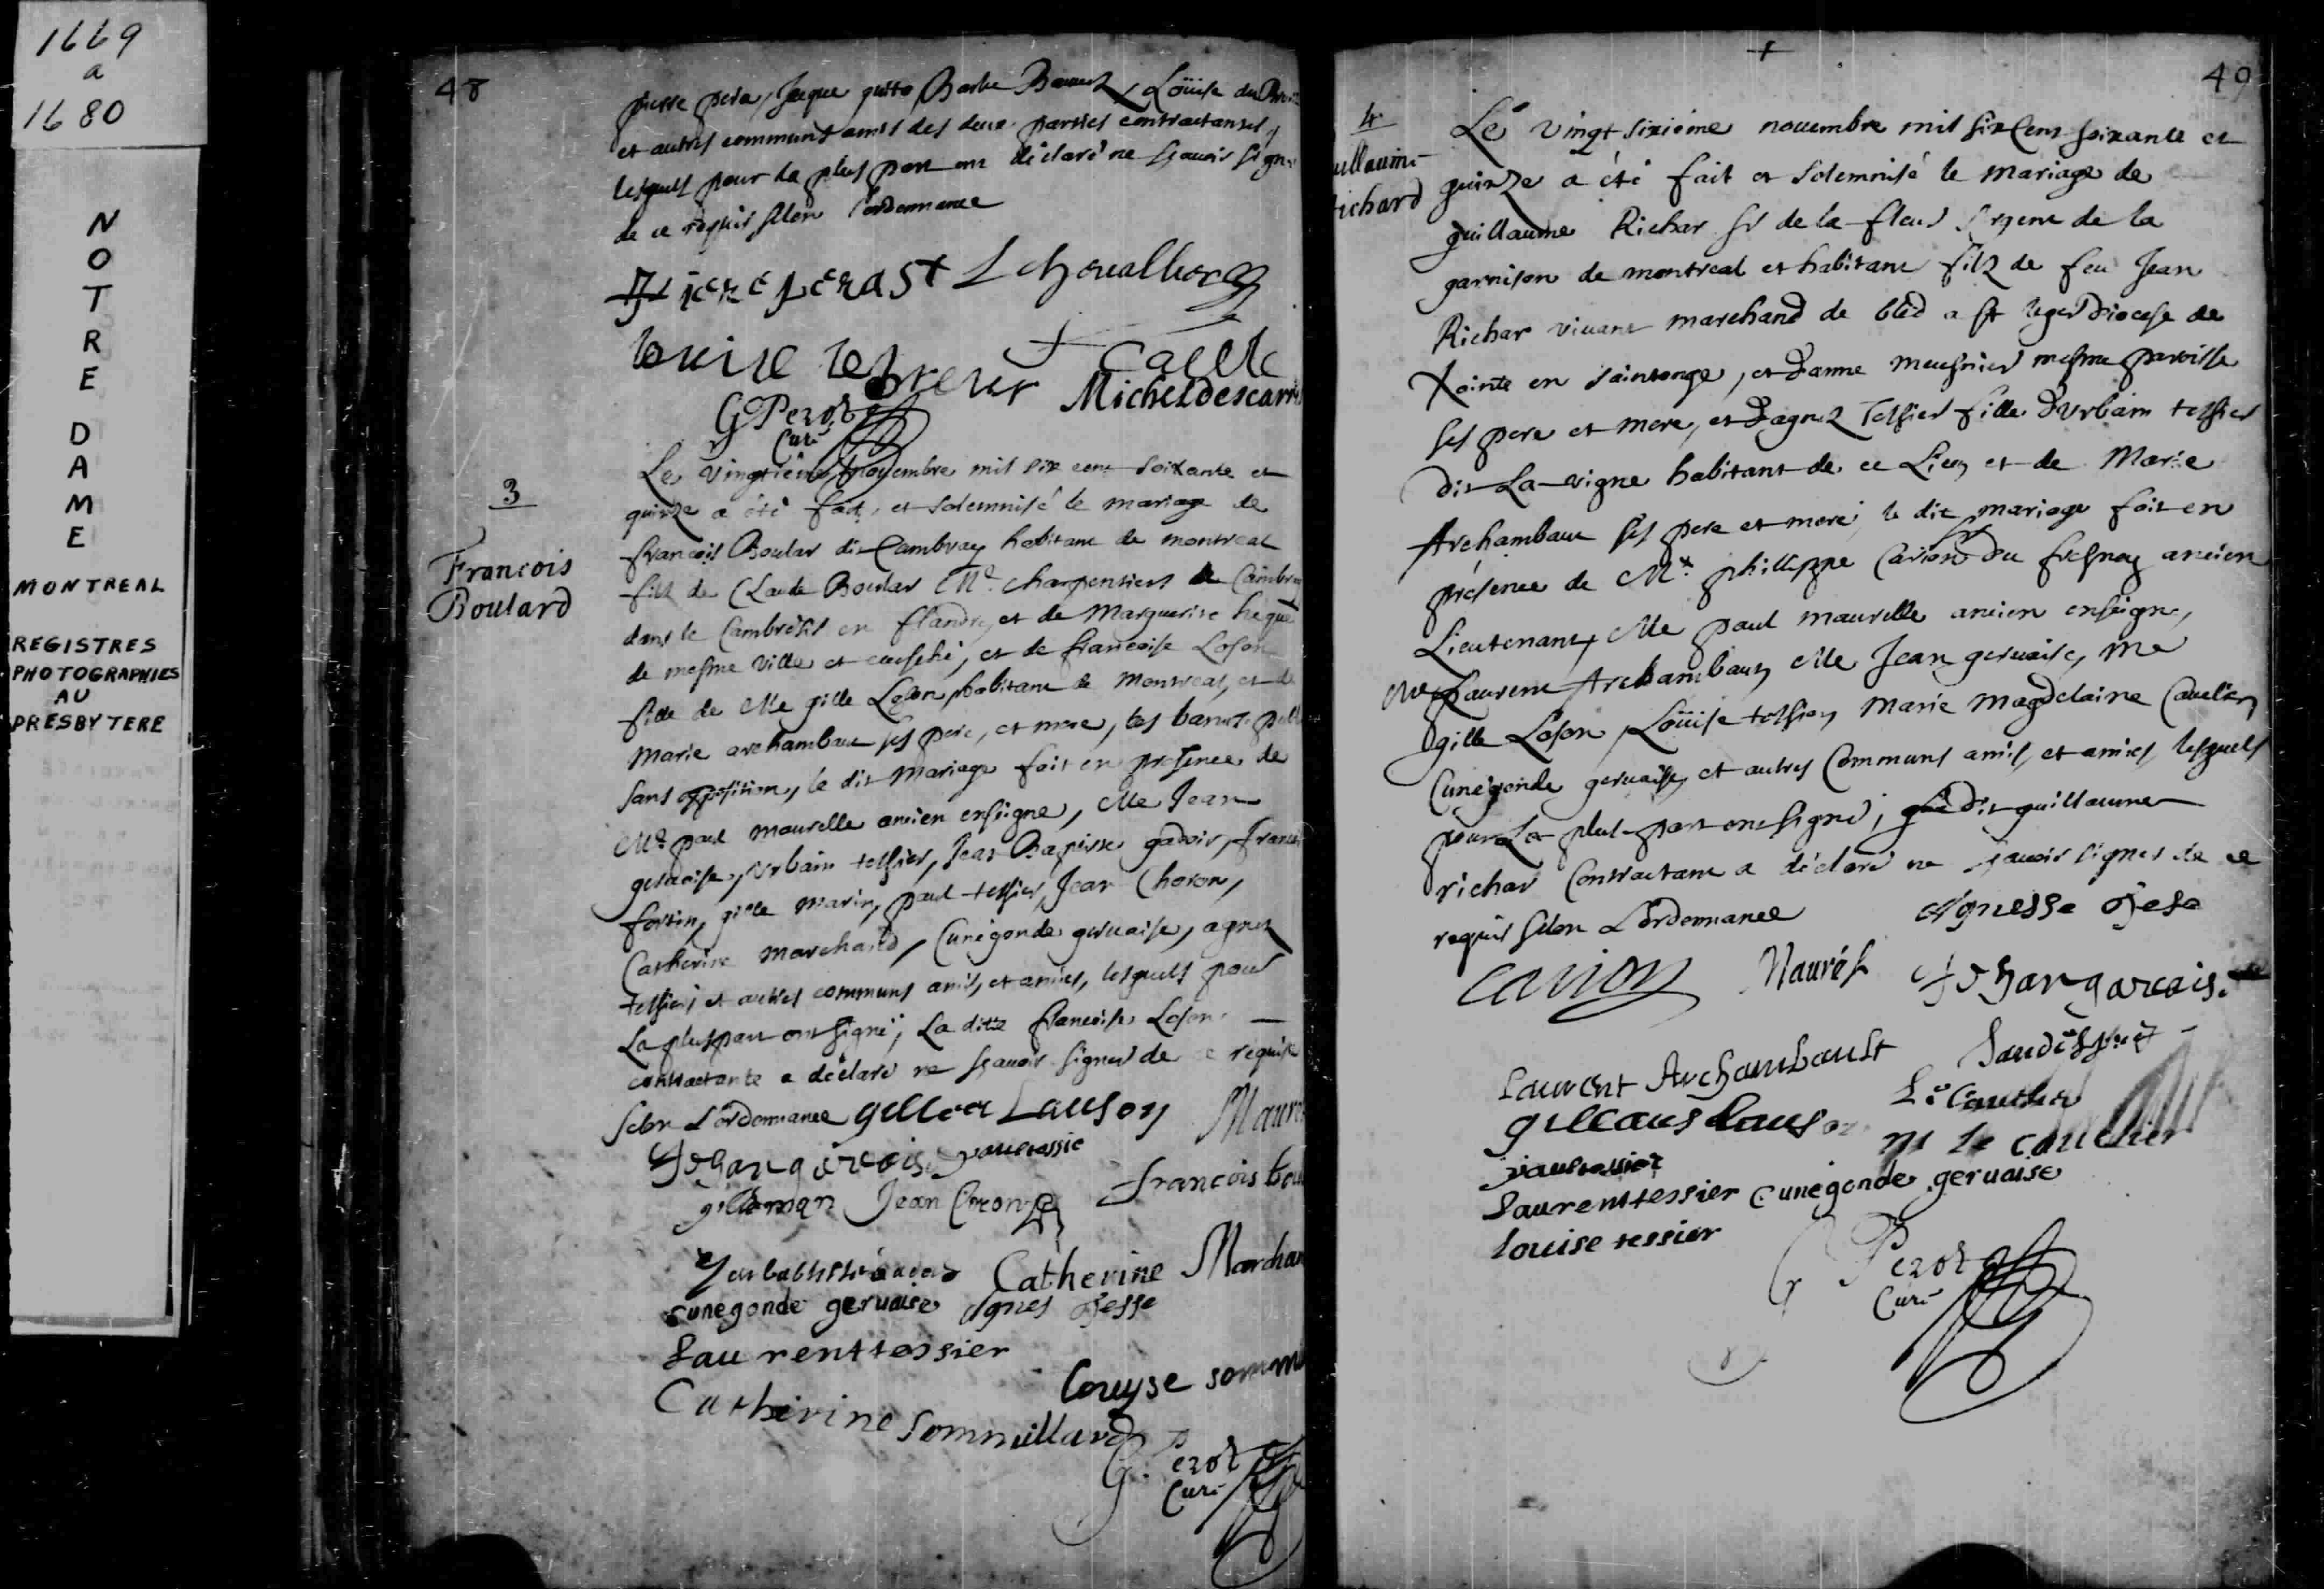 1669
a
1680
NOTRE DAME
MONTREAL
REGISTRES
PHOTOGRAPHIES
AU
PRESBYTERE
48
pierre pera, Jaque Barbe Louise
et autres communs amis des deux parties contractantes,
lesquels pour la plus part ont déclaré ne sçavoir signer
de ce requis selon l'ordonnance
pierc perast Lchevallier
louise lebreux + Caille
G Perot Micheldescarri
Curé
3
Francois
Boulard
Le vingtiéme novembre mil six cent soixante et
quinze a été fait, et solemnisé le mariage de
francois Boular dit Cambray habitant de montreal
fils de Claude Boular Me. charpentier de Cambray
dans le Cambresis en flandre, et de Marguerite
de mesme ville et evesché, et de francoise Loson
fille de Me gille Loson habitant de Montreal, et de
Marie archambaut ses pere, et mere, les bancs
sans opposition, le dit Mariage fait en presence de
Me paul maurelle ancien enseigne, Me Jean
gervaise, Urbain tessier, Jean Baptiste gadois, francois
fortin, gille Marin, paul tessier, Jean Choron,
Catherine Marchand, Cunegonde gervaise, agnez
tessier et autres communs amis, et amies, lesquels pour
La plus part ont signé; La ditte francoise Loson
contractante a declaré ne sçavoir signer de ce requise
selon L'ordonnance gilles Lauson Maur
Jehan gervais paul tassie
gille marin Jean Choron francois bou
Catherine Marchan
cunegonde gervaise Agnes Tesse
Laurenttessier
Louyse somm
Catherine Sommillard
G. Perot
Curé
49
4
uillaume
richard
Le vingt sixiéme novembre mil six Cent soixante et
quinze a été fait et solemnisé le mariage de
guillaume Richar sr de la fleur sergent de la
garnison de montreal et habitant filz de feu Jean
Richar vivant marchand de bled a St leger Diocese de
Xainte en saintonge, et d'anne meusnier mesme paroisse
ses pere et mere, et d'agnez Tessier fille d'Urbain tessier
dit La vigne habitant de ce Lieu et de Marie
Archambaut ses pere et mere; le dit mariage fait en
présence de Mr. philippe Carion du fresnoy ancien
Lieutenant, Me paul maurelle ancien enseigne,
Me Laurent Archambaut, Me Jean gervaise, me
gille Loson, Loüise tessier, Marie Magdelaine Cavelier,
Cunegonde gervaise, et autres Communs amis, et amies lesquels
pour La plus part ont signé; dit guillaume
richar Contractant a déclaré ne sçavoir signer de ce
requis selon L'ordonnance Agnesse Tese
carion Maurél Jehan garvais
Laurent Archambault
gilleaus Lauson Le Cauelier
m le cauelier
paul tassier
Laurenttessier cunegonde gervaise
louise tessier
G Perot
Curé